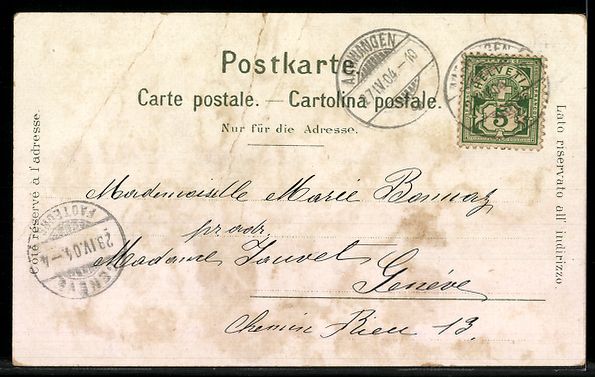 Postkarte
Carte postale. — Cartolina postale.
Nur für die Adresse.
Côté réservé à l'adresse.
Lato riservato all' indirizzo.
AARWANGEN
27.IV.04.-10
HELVETIA
5
GENÈVE
28.IV.04-4
Mademoiselle Marie Bonnaz
pr. adr.
Madame Jauvet
Genève
Chemin Rieu 13.